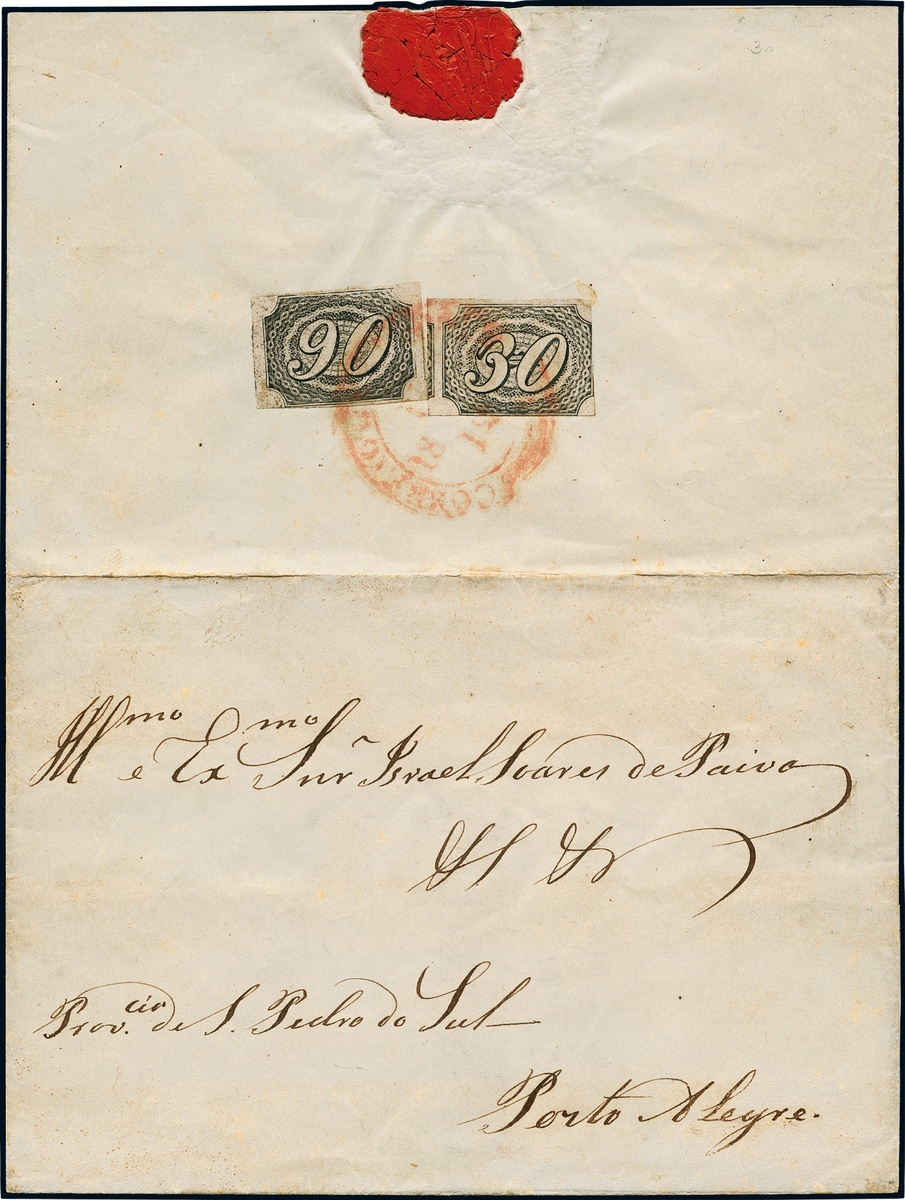 30
90 30
CORREIO
18
Illmo e Exmo Snr Israel Soares de Paiva
Provcia de S. Pedro do Sul
Porto Alegre.